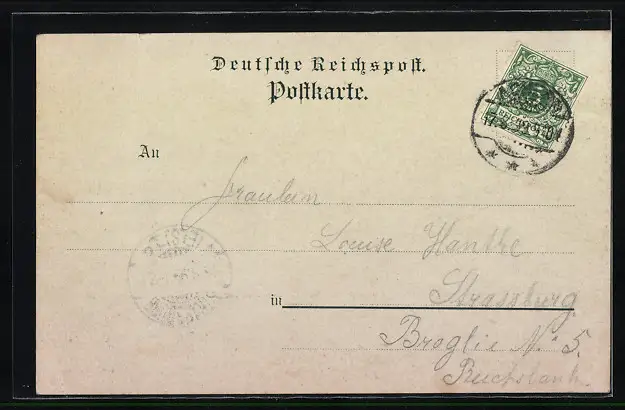 Deutsche Reichspost.
Postkarte.
An
Fräulein
Louise Hantke
in Strassburg
Broglie No. 5.
Reichsland.